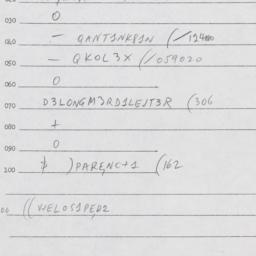 030 0
040 - QANT1NKP1N (/12400
050 - QKOL3X (/059020
060 0
070 D3LONGM3RD1LEJT3R (306
080 +
090 0
100 $ )PARENC+1 (162
((WELOS1PED2